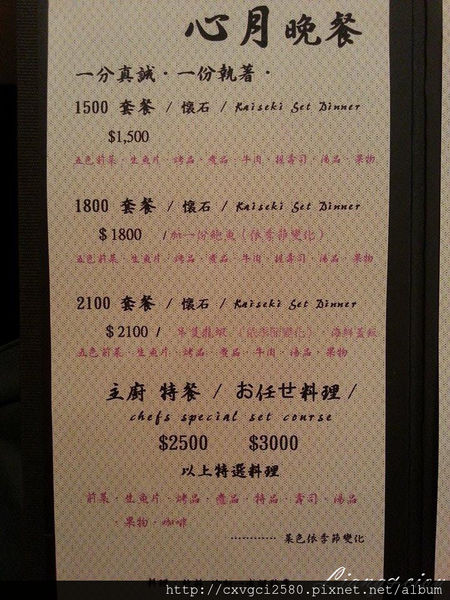 心月晚餐
一分真誠・一份執著・
1500 套餐 / 懷石 / Kaiseki Set Dinner
$1,500
五色前菜・生魚片・烤品・煮品・牛肉・握壽司・湯品・果物
1800 套餐 / 懷石 / Kaiseki Set Dinner
$1800 /加一份鮑魚(依季節變化)
五色前菜・生魚片・烤品・煮品・牛肉・握壽司・湯品・果物
2100 套餐 / 懷石 / Kaiseki Set Dinner
$2100 / 半隻龍蝦 (依季節變化)・海鮮蓋飯
五色前菜・生魚片・烤品・煮品・牛肉・湯品・果物
主廚 特餐 / お任せ料理 /
chefs special set course
$2500 $3000
以上特選料理
前菜・生魚片・烤品・煮品・特品・壽司・湯品
・果物・咖啡
............ 菜色依季節變化
http://cxvgci2580.pixnet.net/album